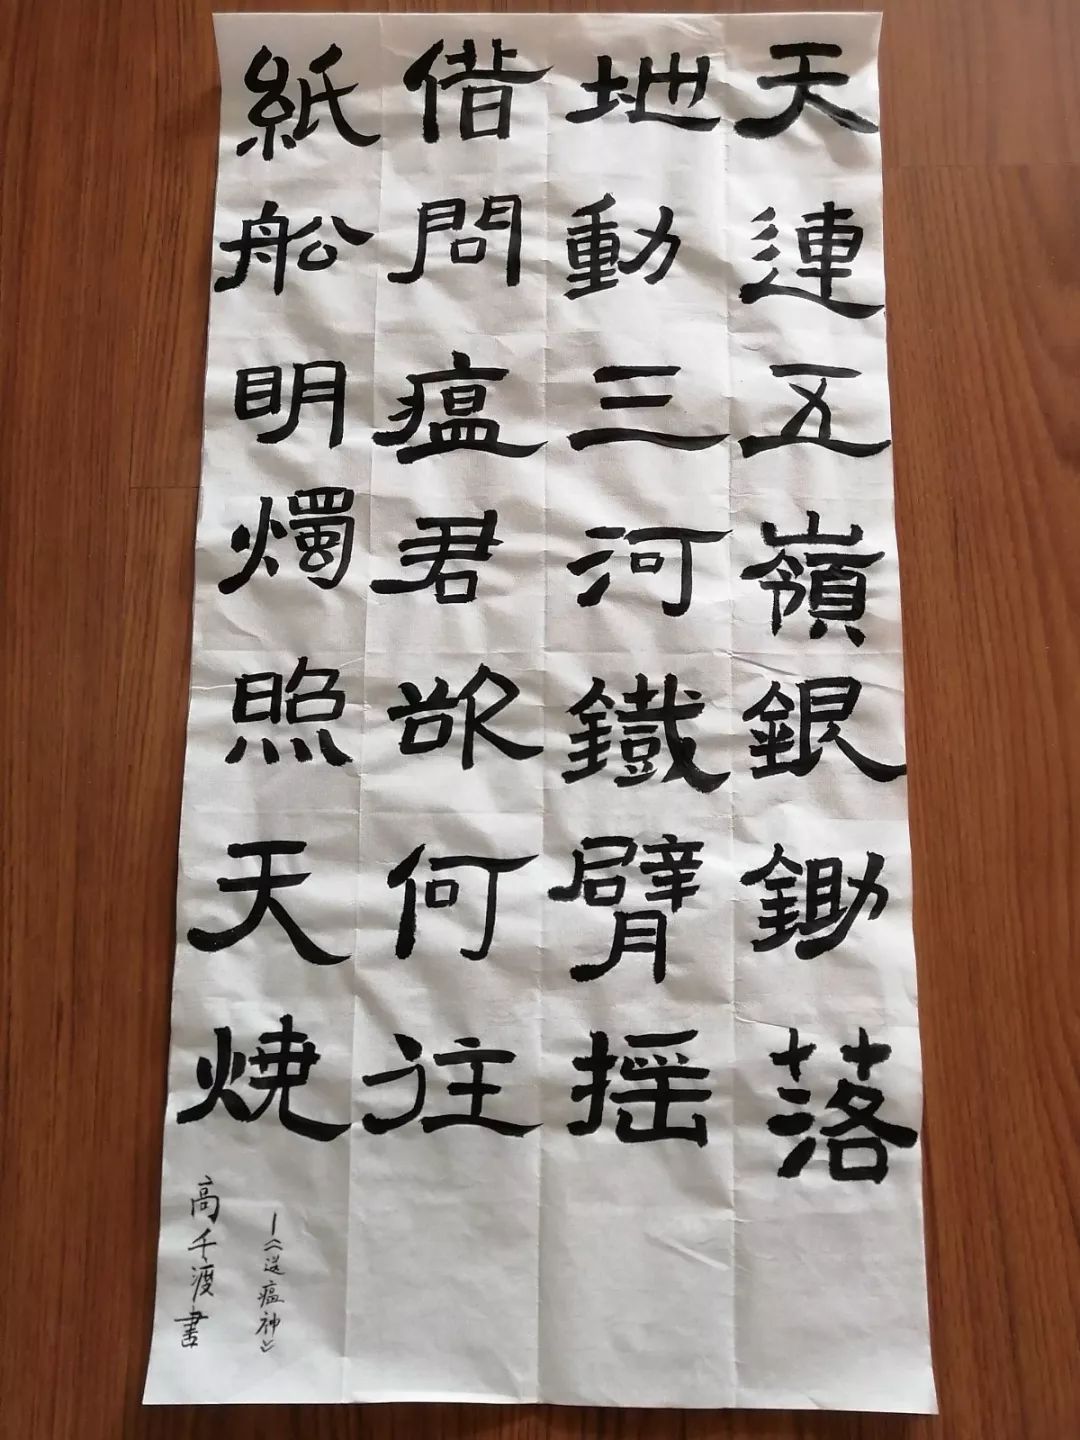 天連五嶺銀鋤落
地動三河鐵臂摇
偕問瘟君欲何往
紙船明燭照天燒
—《送瘟神》
高千渡書